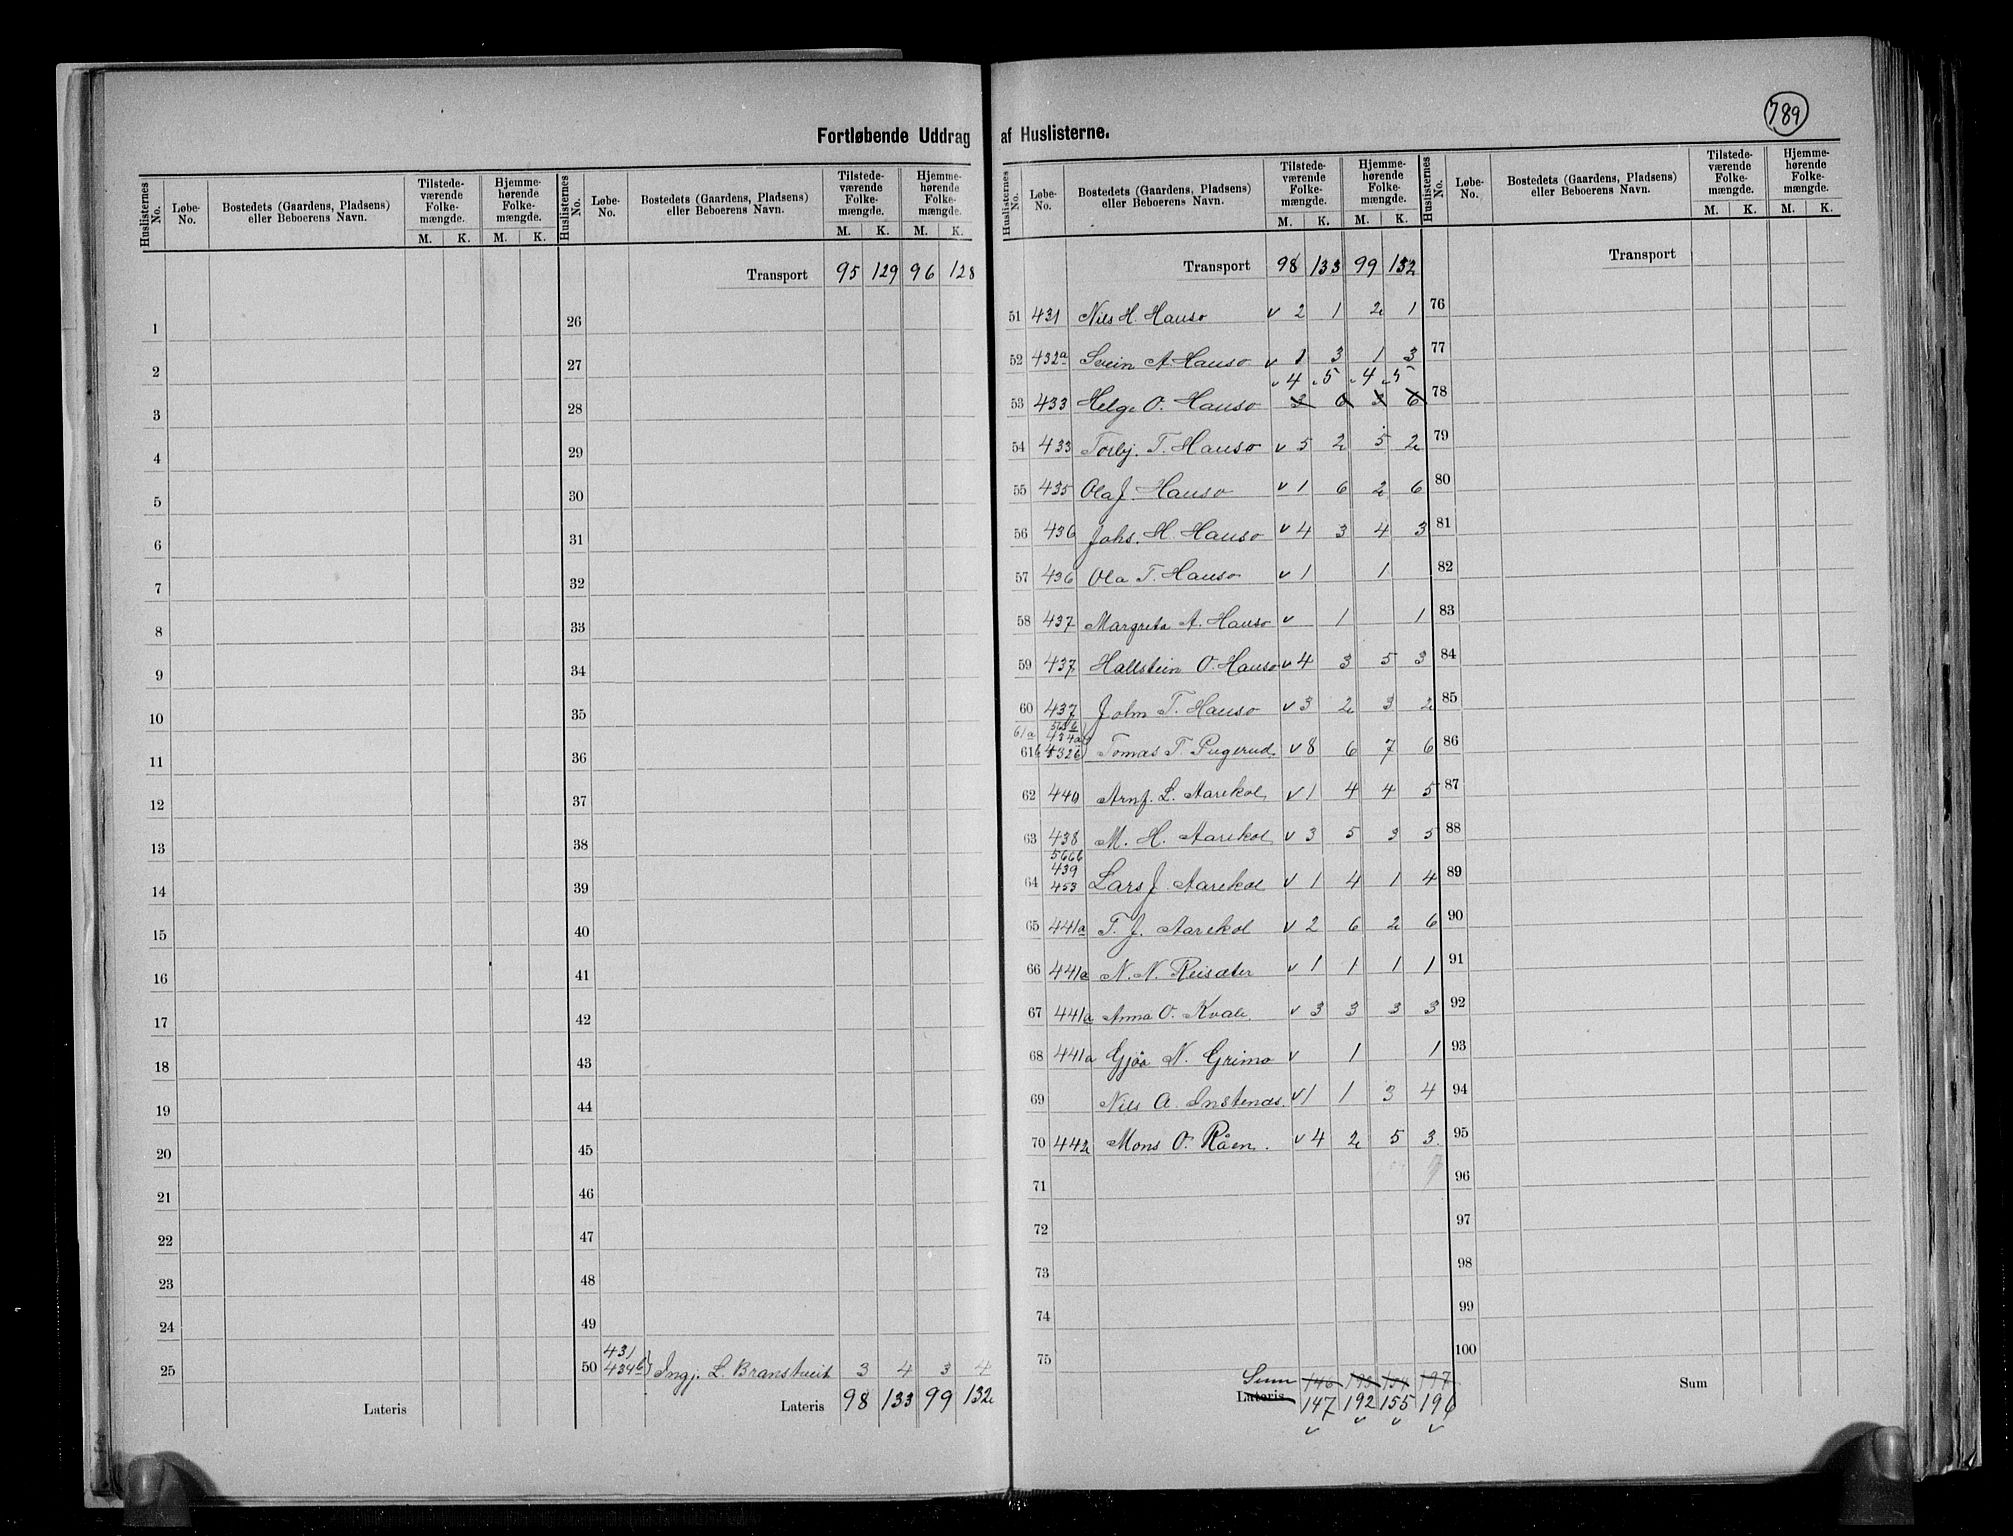 789
Fortløbende Uddrag af Huslisterne.
Huslisternes No. Løbe-No. Bostedets (Gaardens, Pladsens) eller Beboerens Navn. Tilstede-værende Folke-mængde. M. K. Hjemme-hørende Folke-mængde. M. K.
1
2
3
4
5
6
7
8
9
10
11
12
13
14
15
16
17
18
19
20
21
22
23
24
25
Lateris
Huslisternes No. Løbe-No. Bostedets (Gaardens, Pladsens) eller Beboerens Navn. Tilstede-værende Folke-mængde. M. K. Hjemme-hørende Folke-mængde. M. K.
Transport 95 129 96 128
26
27
28
29
30
31
32
33
34
35
36
37
38
39
40
41
42
43
44
45
46
47
48
49
431
50 434b) Ingj. L. Branstveit 3 4 3 4
Lateris 98 133 99 132
Huslisternes No. Løbe-No. Bostedets (Gaardens, Pladsens) eller Beboerens Navn. Tilstede-værende Folke-mængde. M. K. Hjemme-hørende Folke-mængde. M. K.
Transport 98 133 99 132
51 431 Nils H. Hauso v 2 1 2 1
52 432a Svein A. Hauso v 1 3 1 3
v 4 v 5 v 4 v 5
53 433 Helge O. Hauso 3 6 3 6
54 433 Torbj. T. Hauso v 5 2 5 2
55 435 Ola J. Hauso v 1 6 2 6
56 436 Johs. H. Hauso v 4 3 4 3
57 436 Ola T. Hauso v 1 1
58 437 Margreta A. Hauso v 1 1
59 437 Hallstein O. Hauso v 4 3 5 3
60 437 John T. Hauso v 3 2 3 2
61a 434a
61b 432b) Tomas T. Pugerud v 8 6 7 6
62 440 Arnf. L. Aarekol v 1 4 4 5
63 438 M. H. Aarekol v 3 5 3 5
566b
439
64 453 Lars J. Aarekol v 1 4 1 4
65 441a T. J. Aarekol v 2 6 2 6
66 441a N. N. Reisæter v 1 1 1 1
67 441a Anna O. Kvale v 3 3 3 3
68 441a Gjøa N. Grimo v 1 1
69 Nils A. Instenæs. v 1 1 3 4
70 442 Mons O. Råen. v 4 2 5 3
71
72
73
74
75
Sum 146 193 154 197
Lateris 147 192 155 196
v v v v
Huslisternes No. Løbe-No. Bostedets (Gaardens, Pladsens) eller Beboerens Navn. Tilstede-værende Folke-mængde. M. K. Hjemme-hørende Folke-mængde. M. K.
Transport
76
77
78
79
80
81
82
83
84
85
86
87
88
89
90
91
92
93
94
95
96
97
98
99
100
Sum